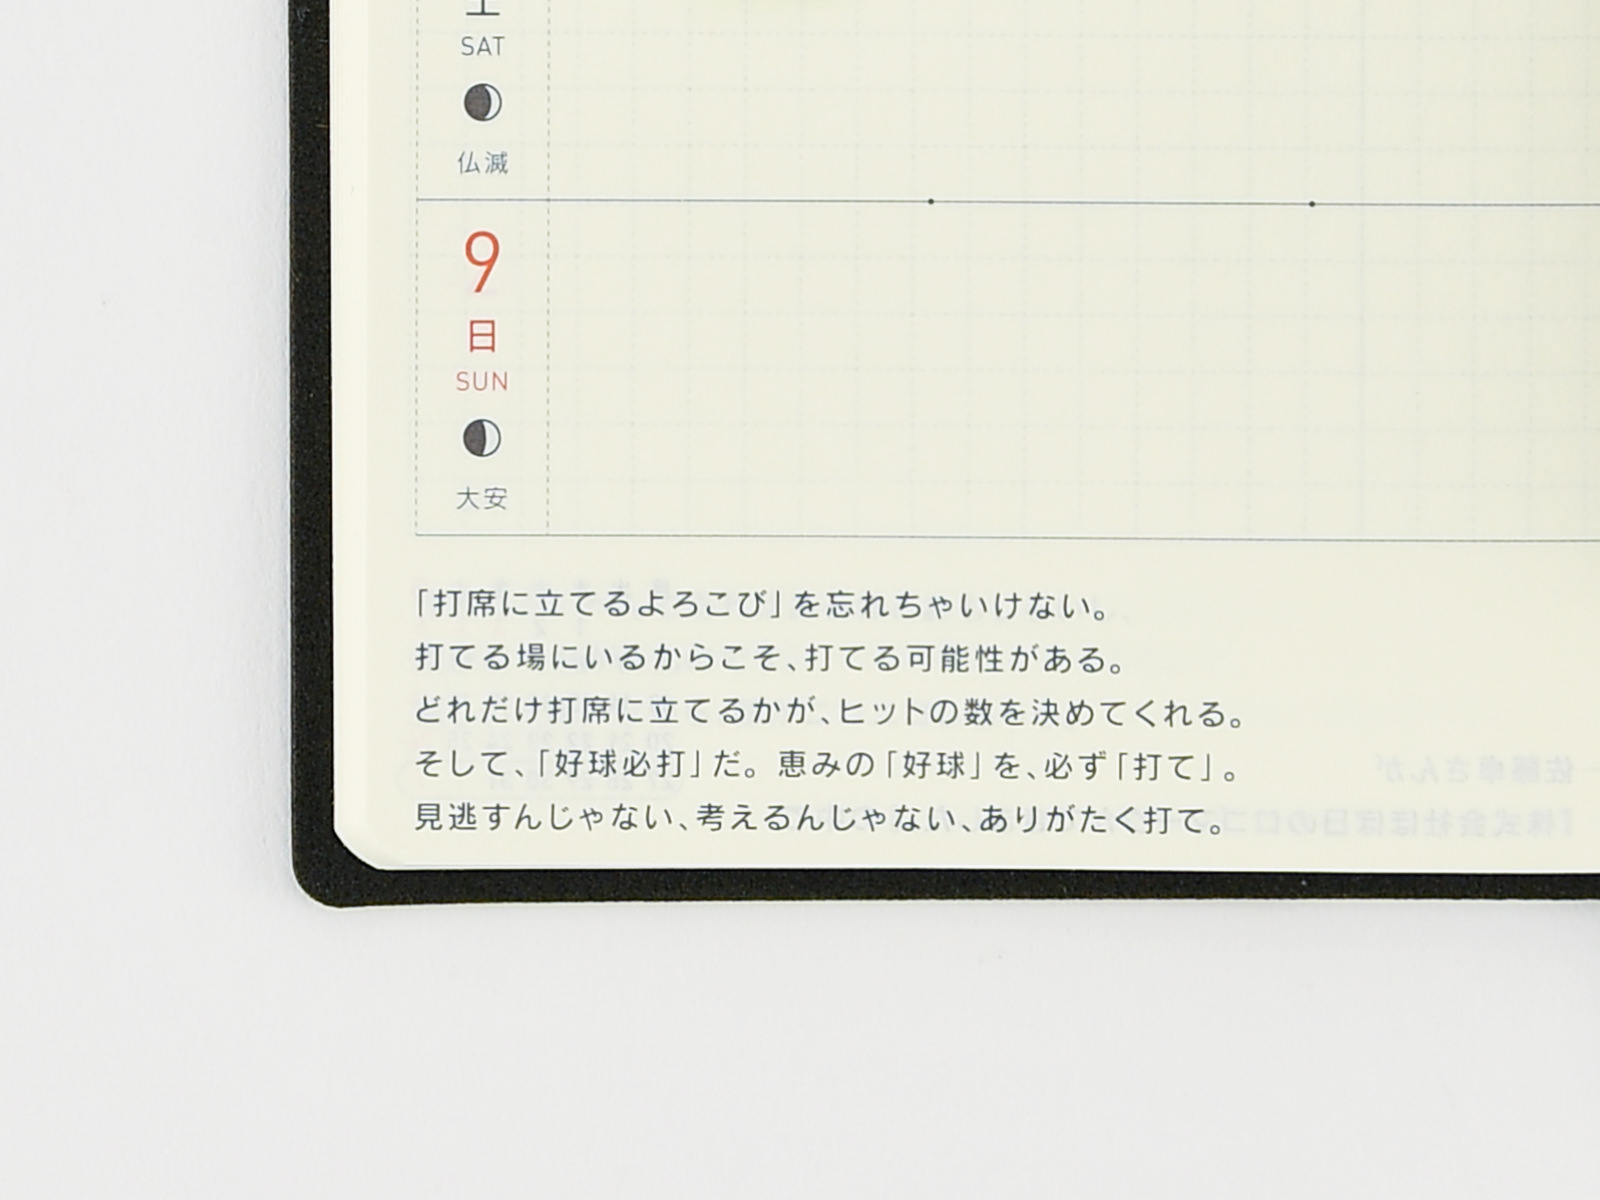 SAT
仏滅
9
日
SUN
大安
「打席に立てるよろこび」を忘れちゃいけない。
打てる場にいるからこそ、打てる可能性がある。
どれだけ打席に立てるかが、ヒットの数を決めてくれる。
そして、「好球必打」だ。恵みの「好球」を、必ず「打て」。
見逃すんじゃない、考えるんじゃない、ありがたく打て。